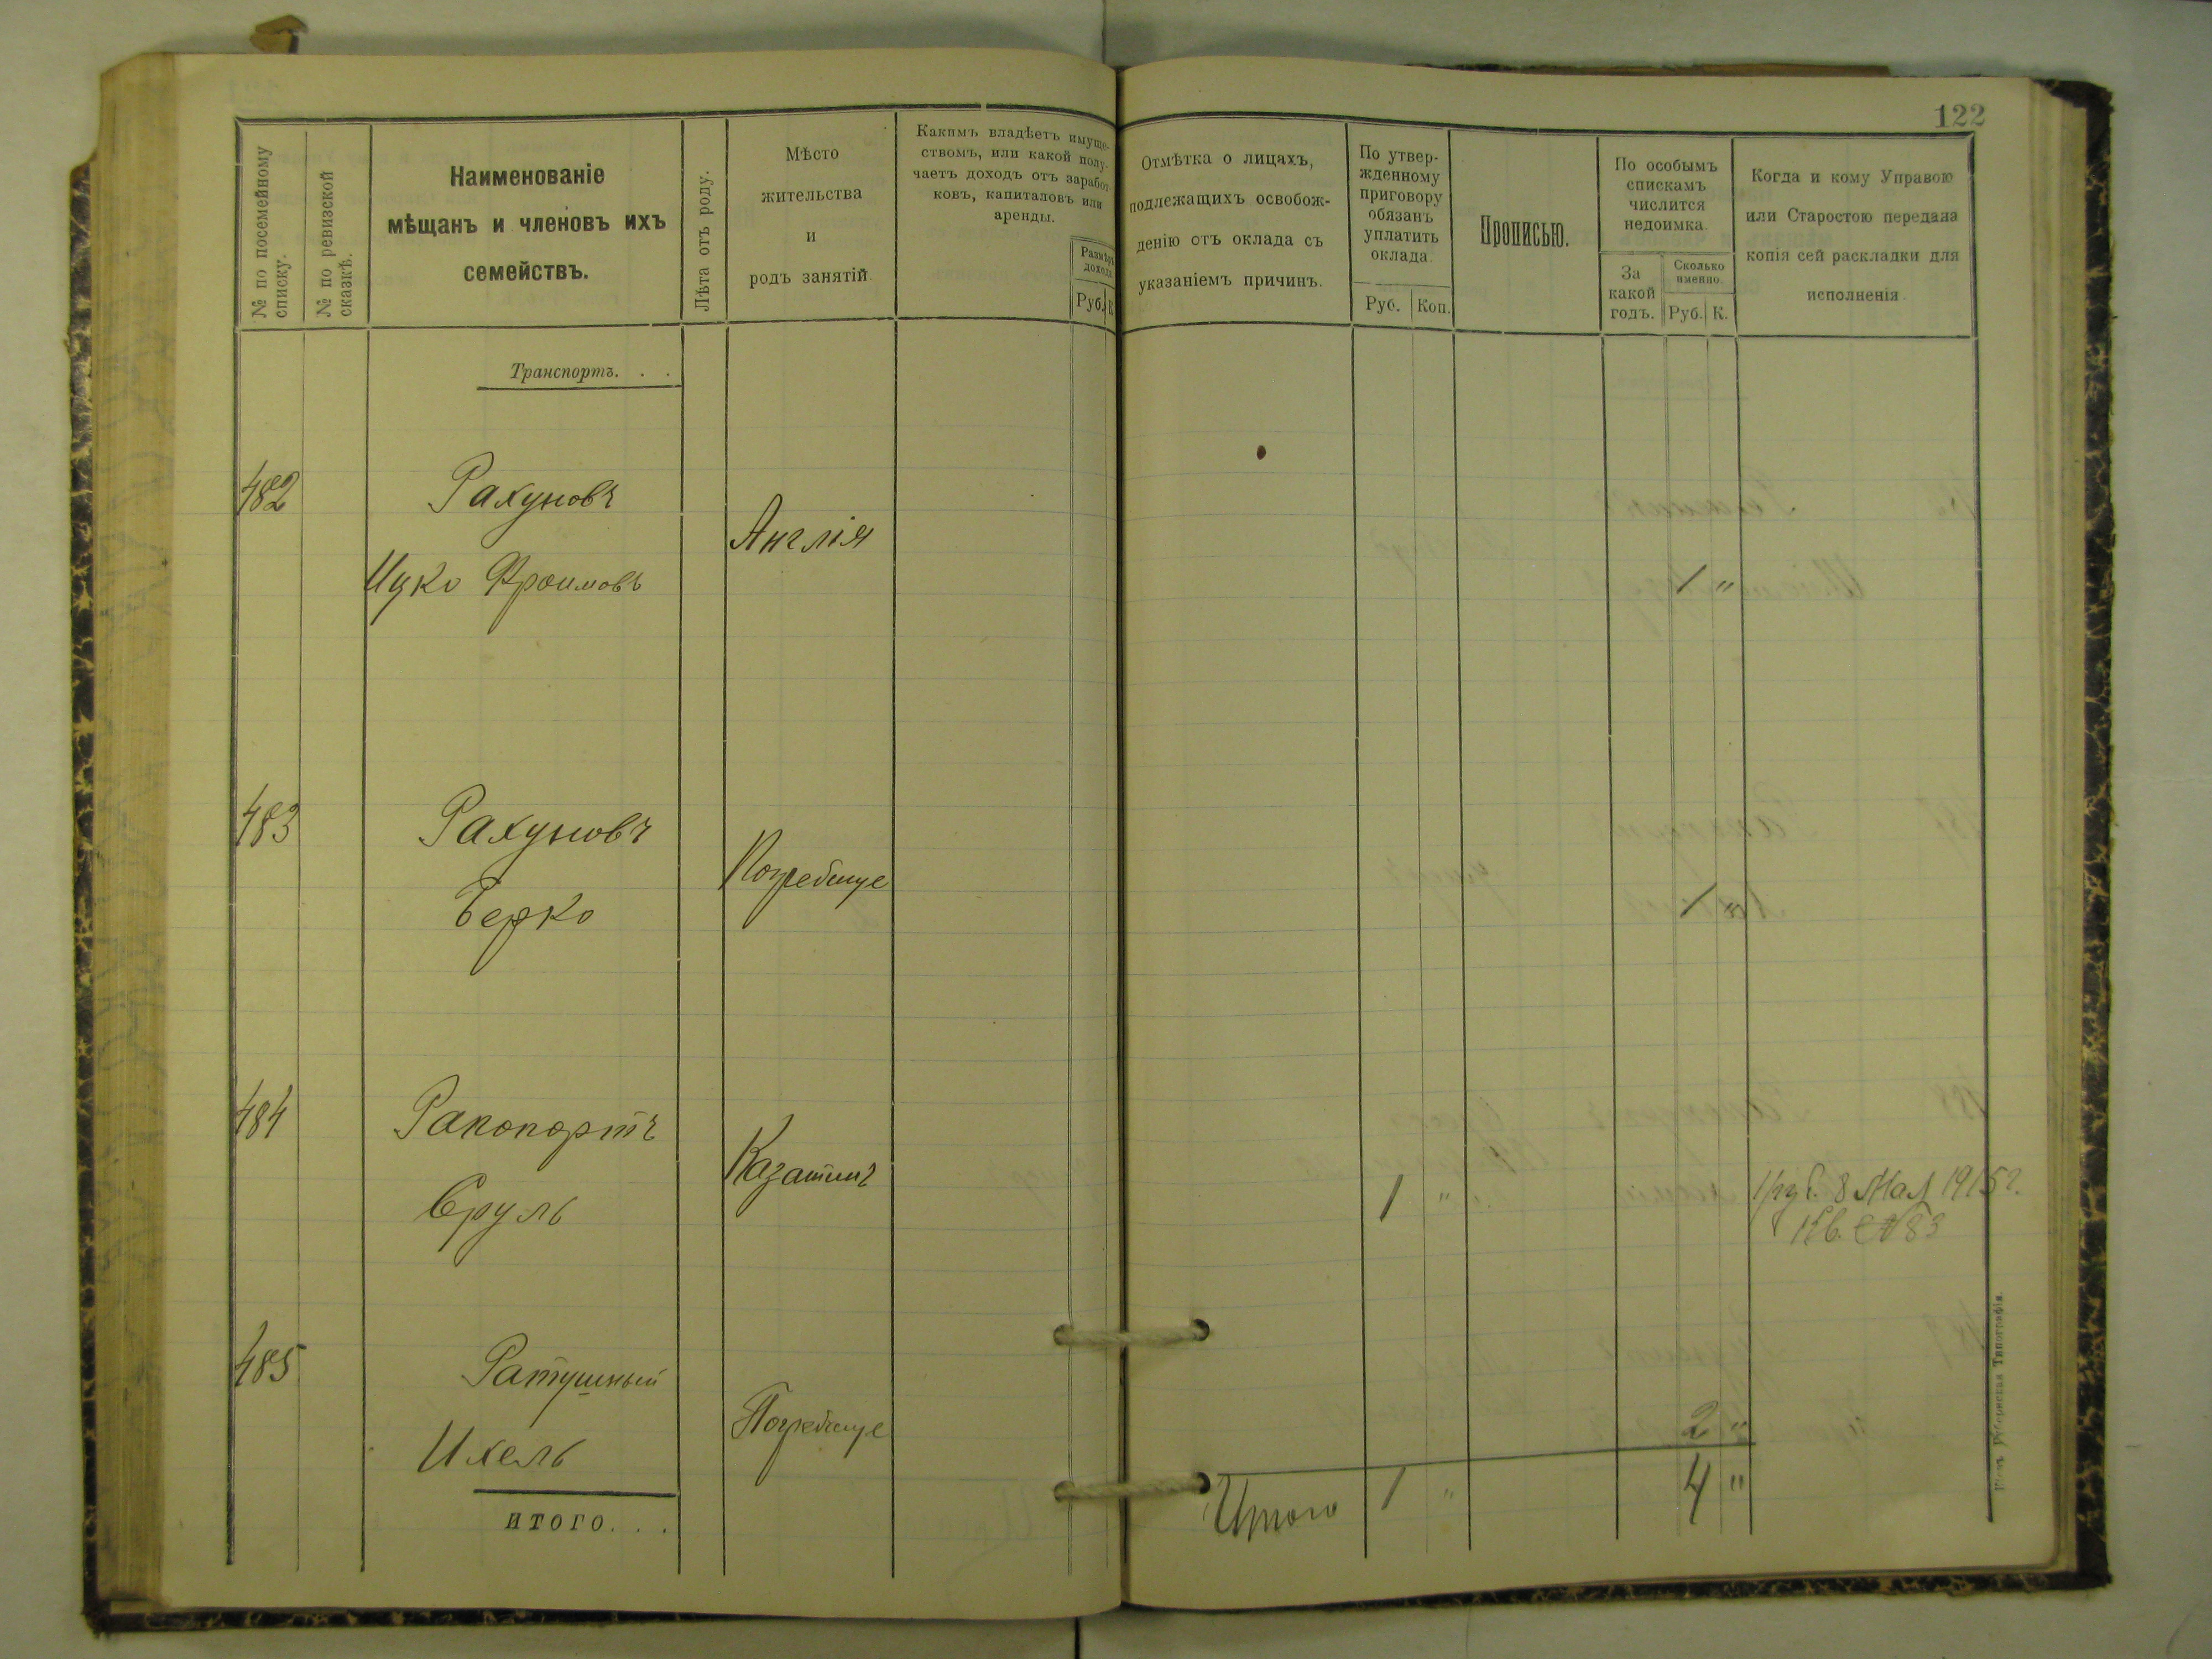 122
№ по посемейному
списку.
№ по ревизской
сказкѣ.
Наименованіе
мѣщанъ и членовъ ихъ
семействъ.
Лѣта отъ роду.
Мѣсто
жительства
и
родъ занятій
Какимъ владѣетъ имуще-
ствомъ, или какой полу-
чаетъ доходъ отъ заработ
ковъ, капиталовъ или
аренды.
Размѣръ
дохода
Руб. К
Отмѣтка о лицахъ,
подлежащихъ освобож-
денію отъ оклада съ
указаніемъ причинъ.
По утвер-
жденному
приговору
обязанъ
уплатить
оклада
Руб. Коп.
Прописью.
По особымъ
спискамъ
числится
недоимка.
За
какой
годъ.
Сколько
именно.
Руб. К.
Когда и кому Управою
или Старостою передана
копія сей раскладки для
исполненія
Транспортъ. . .
482 Рахуновъ
Англія
Ицко Фроимовъ 1 "
483 Рахуновъ
Погребище
Берко 1 "
484 Рапопортъ
Казатинъ
Сруль 1 " 1 руб. 8 Мая 1915 г.
Кв. №83
485 Ратушный
Погребище
Ихель 2 "
итого. . .
Итого 1 " 4 "
Губернская Типографія.